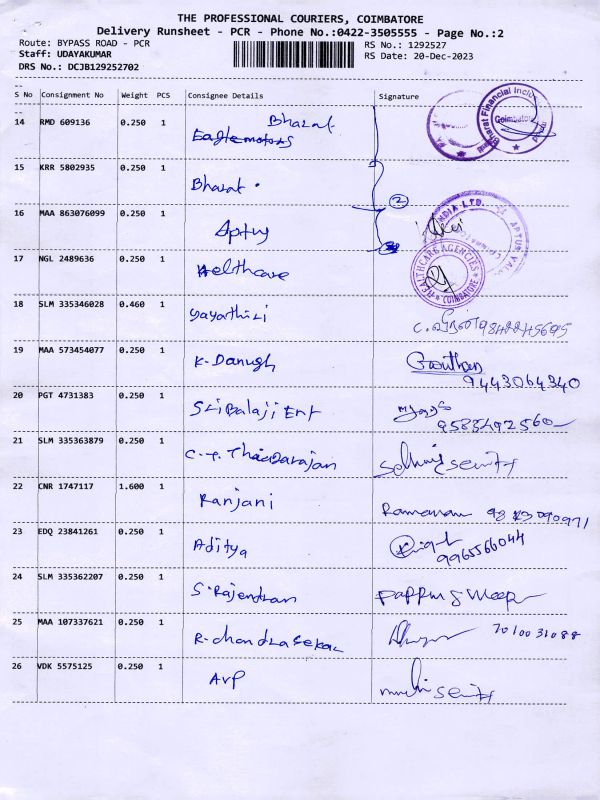 THE PROFESSIONAL COURIERS, COIMBATORE
Delivery Runsheet - PCR - Phone No.:0422-3505555 - Page No.:2
Route: BYPASS ROAD - PCR RS No.: 1292527
Staff: UDAYAKUMAR RS Date: 20-Dec-2023
DRS No.: DCJB129252702
S No Consignment No Weight PCS Consignee Details Signature
14 RMD 609136 0.250 1 Bharat
Eaglemotors
Bharat Financial Inclu
Coimbatore
15 KRR 5802935 0.250 1 Bharat .
2
16 MAA 863076099 0.250 1 Aptus
INDIA LTD. APTUS VAL
17 NGL 2489636 0.250 1 Helthcare
HEALTHCARE AGENCIES
COIMBATORE
18 SLM 335346028 0.460 1 Gayathili
19 MAA 573454077 0.250 1 K. Danush Gouthan
9443064340
20 PGT 4731383 0.250 1 Sribalaji Ent
9585492560
21 SLM 335363879 0.250 1 C.P. Thiagarajan
22 CNR 1747117 1.600 1 Ranjani Ramanan
23 EDQ 23841261 0.250 1 Aditya
9965566044
24 SLM 335362207 0.250 1 S. Rajendran
25 MAA 107337621 0.250 1 R. chandrasekar 7010031088
26 VDK 5575125 0.250 1 AVP